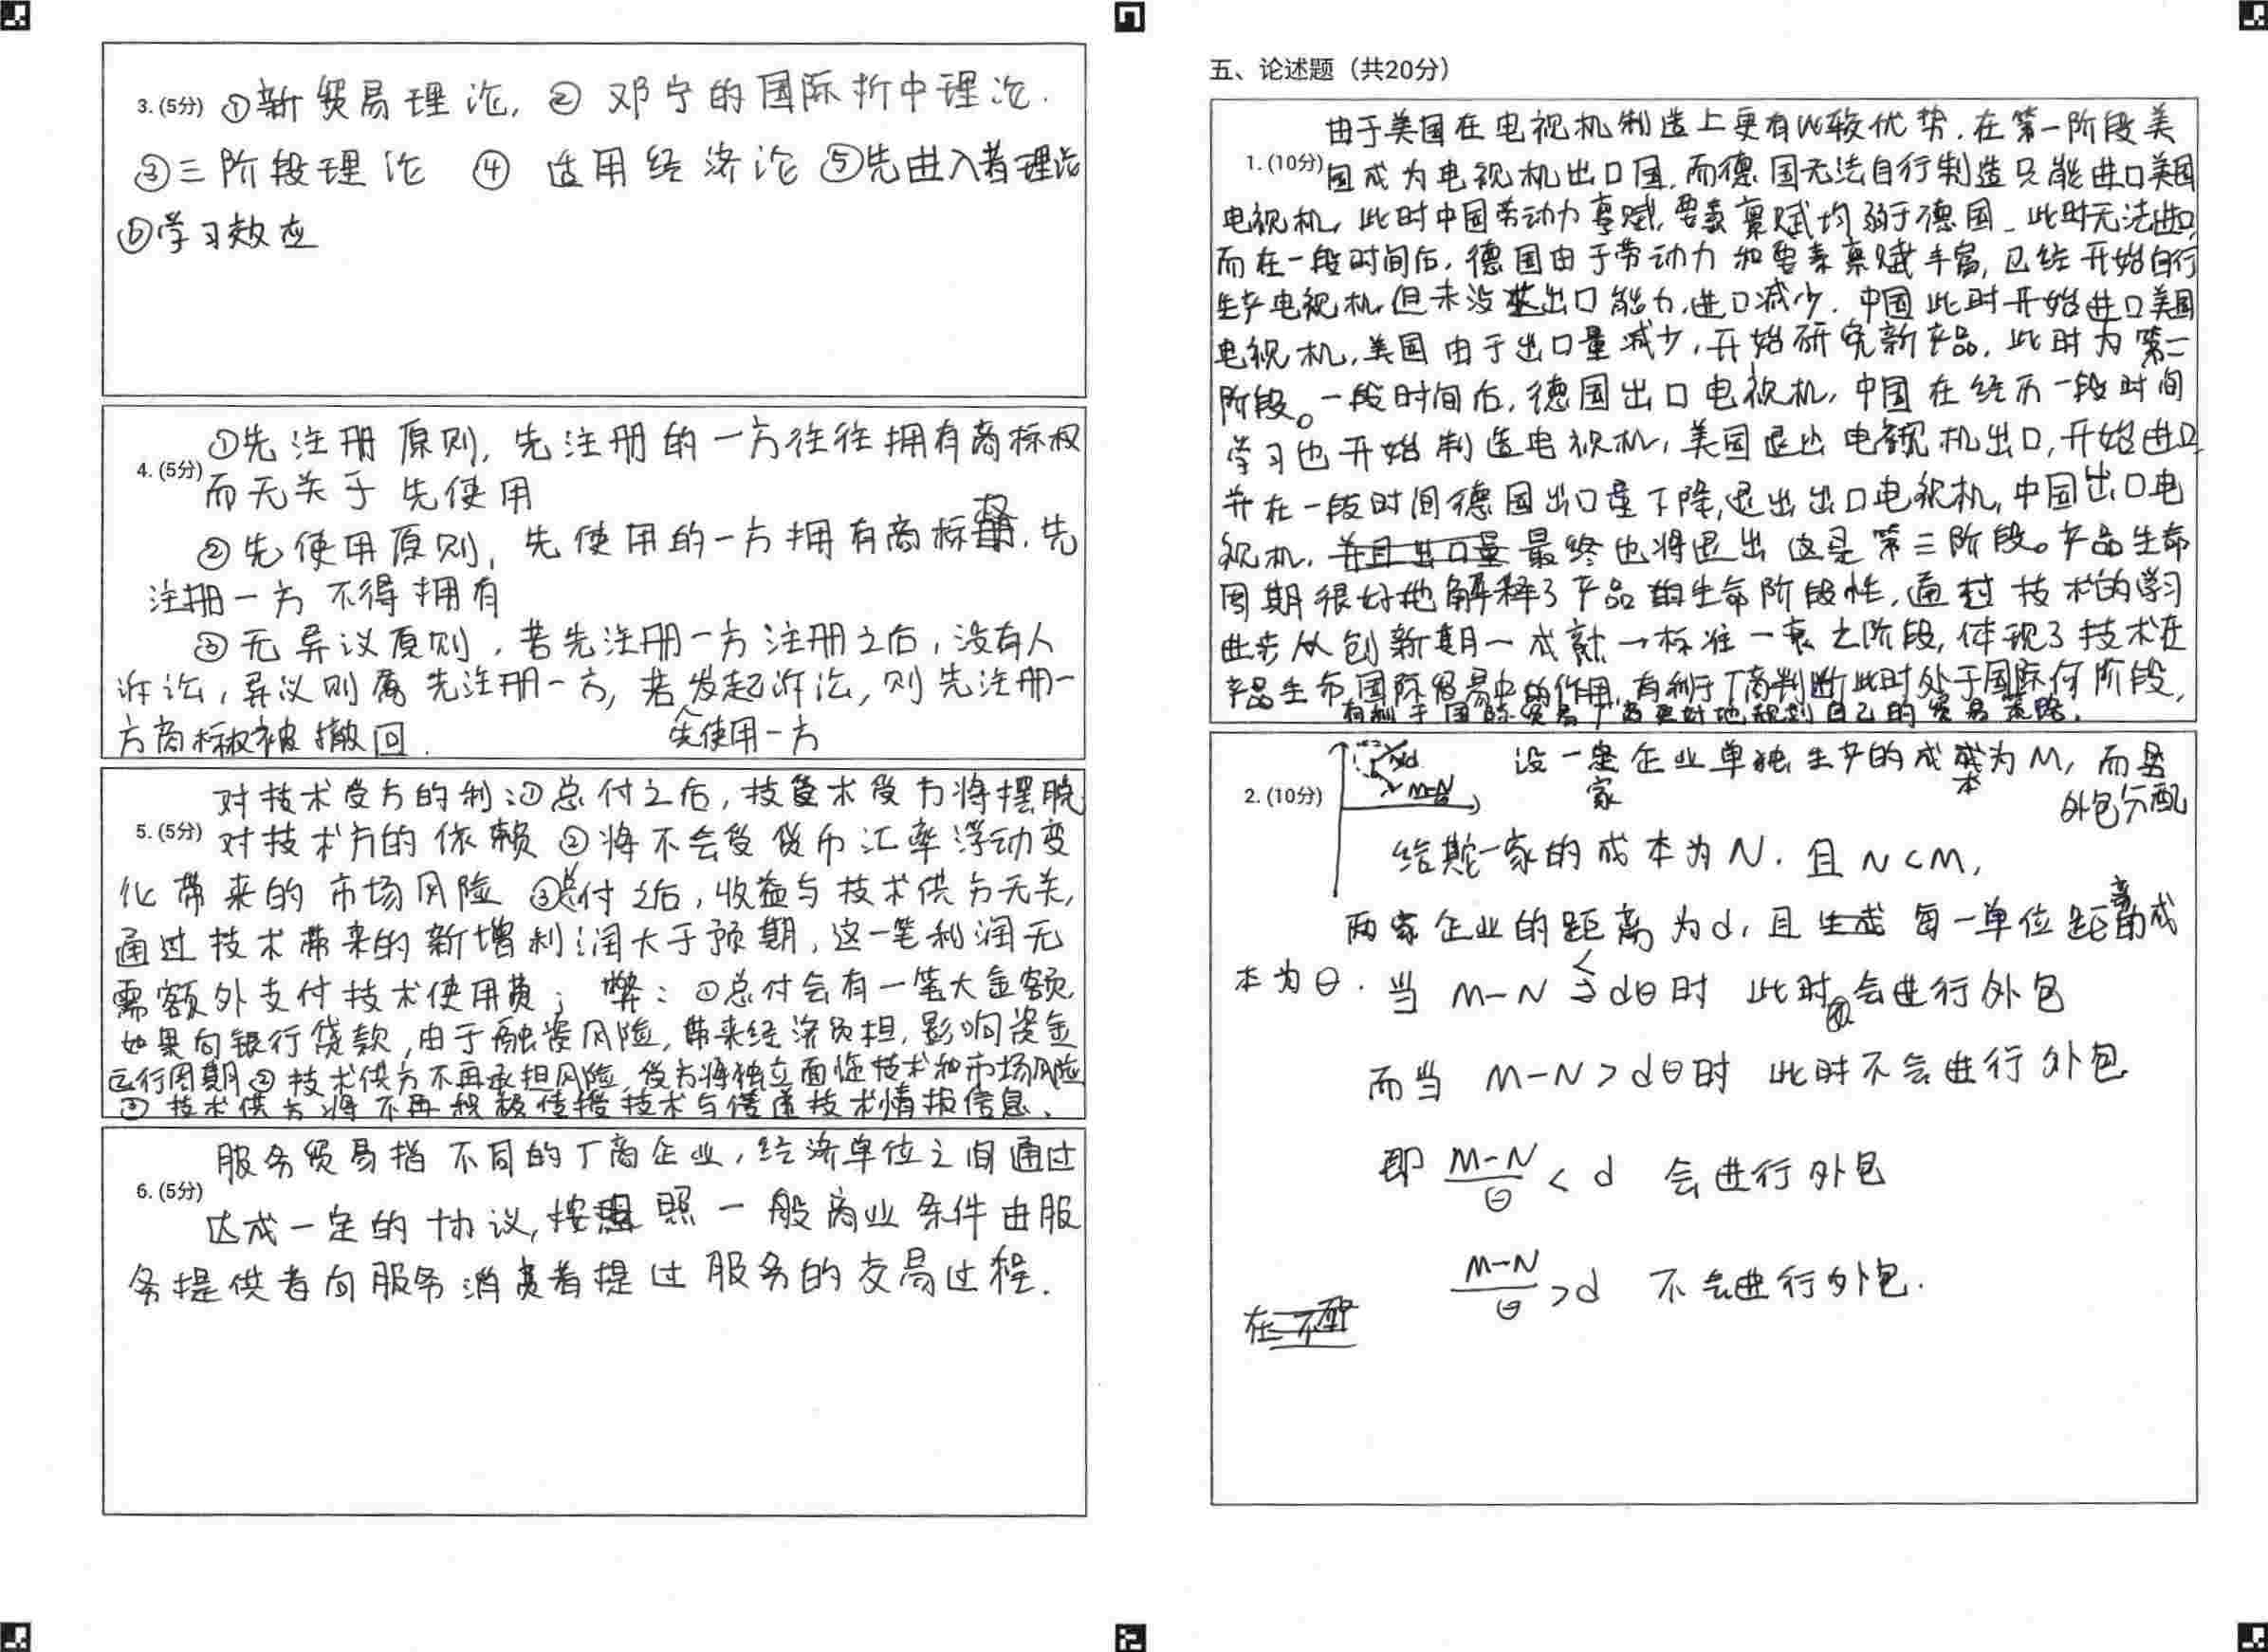 3. (5分) ①新贸易理论, ② 邓宁的国际折中理论.
③三阶段理论 ④ 适用经济论 ⑤先进入者理论
⑥学习效应
①先注册原则, 先注册的一方往往拥有商标权
4. (5分) 而无关于先使用
②先使用原则, 先使用的一方拥有商标权, 先
注册一方不得拥有
③无异议原则, 若先注册一方注册之后, 没有人
诉讼, 异议则属先注册一方, 若先使用一方发起诉讼, 则先注册一
方商标权被撤回.
对技术受方的利: ①总付之后, 技术受方将摆脱
5. (5分) 对技术方的依赖 ②将不会受货币汇率浮动变
化带来的市场风险 ③总付之后, 收益与技术供方无关,
通过技术带来的新增利润大于预期, 这一笔利润无
需额外支付技术使用费; 弊: ①总付会有一笔大金额
如果向银行贷款, 由于融资风险, 带来经济负担, 影响资金
运行周期 ② 技术供方不再承担风险, 受方将独立面临技术和市场风险
③ 技术供方将不再积极传授技术与传递技术情报信息.
服务贸易指不同的厂商企业, 经济单位之间通过
6. (5分) 达成一定的协议, 按照一般商业条件由服
务提供者向服务消费者提过服务的交易过程.
五、论述题（共20分）
由于美国在电视机制造上更有比较优势. 在第一阶段美
1. (10分) 国成为电视机出口国, 而德国无法自行制造只能进口美国
电视机, 此时中国劳动力禀赋, 要素禀赋均弱于德国. 此时无法进口,
而在一段时间后, 德国由于劳动力和要素禀赋丰富, 已经开始自行
生产电视机, 但未没出口能力, 进口减少. 中国此时开始进口美国
电视机, 美国由于出口量减少, 开始研究新产品, 此时为第二
阶段。一段时间后, 德国出口电视机, 中国在经历一段时间
学习也开始制造电视机, 美国退出电视机出口, 开始进口
并在一段时间德国出口量下降, 退出出口电视机, 中国出口电
视机, 最终也将退出 这是第三阶段。产品生命
周期很好地解释了产品的生命阶段性, 通过技术的学习
进步从创新期一成熟一标准一衰之阶段, 体现了技术在
产品生命, 国际贸易中的作用, 有利于厂商判断此时处于国际何阶段,
有利于国际贸易厂商更好地规划自己的贸易策略.
2. (10分) 设一家企业单独生产的成本为M, 而另外包分配
给其他一家的成本为N. 且 N<M,
两家企业的距离为d, 且每一单位距离的成
本为θ. 当 M-N < dθ时 此时会进行外包
而当 M-N > dθ时 此时不会进行外包
即 M-N/θ < d 会进行外包
M-N/θ > d 不会进行外包.